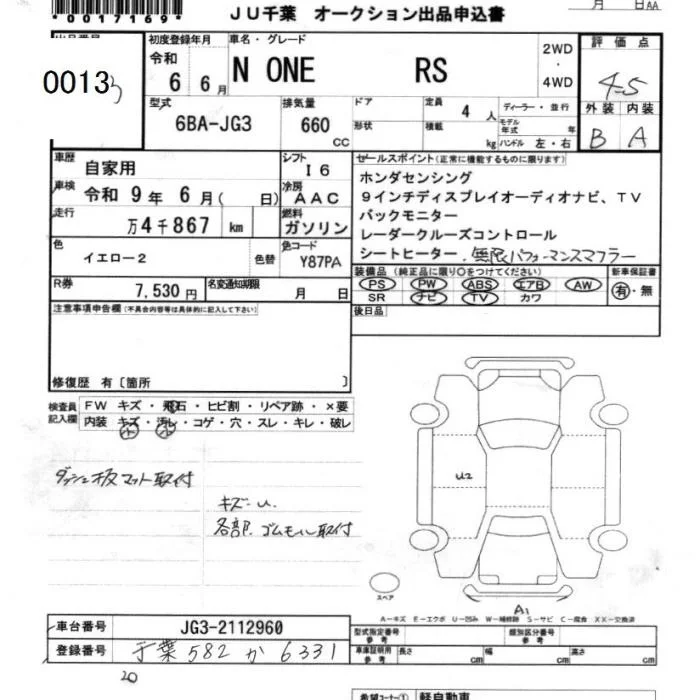 *0017169*
JU千葉 オークション出品申込書
月 日 AA
出品番号
0013
初度登録年月
令和
6 6月
車名・グレード
N ONE RS
2WD
・
4WD
評価点
4-5
外装 内装
B A
型式
6BA-JG3
排気量
660 CC
ドア
形状
定員 4 人
積載 kg
ディーラー・並行
モデル年式 年
ハンドル 左・右
車歴 自家用
シフト I6
車検 令和 9年 6月( 日)
冷房 AAC
走行 万4千867 km
燃料 ガソリン
色 イエロー2 色替
色コード Y87PA
R券 7,530円
名変通知期限 月 日
セールスポイント(正常に機能するものに限ります)
ホンダセンシング
9インチディスプレイオーディオナビ、TV
バックモニター
レーダークルーズコントロール
シートヒーター.無限パフォーマンスマフラー
装備品(純正品に限り〇をつけてください)
新車保証書
PS PW ABS エアB AW
SR ナビ TV カワ
有・無
後日品
注意事項申告欄(不具合内容等は具体的に記入して下さい)
修復歴 有〔箇所 〕
検査員記入欄
FW キズ・飛石・ヒビ割・リペア跡・×要
内装 キズ・汚れ・コゲ・穴・スレ・キレ・破レ
小 小
ダッシュ板マット取付
キズ-u.
各部.ゴムモール取付
U2
A1
スペア
A-キズ E-エクボ U-凹み W-補修跡 S-サビ C-腐食 XX-交換済
車台番号 JG3-2112960
登録番号 千葉 582 か 6331
20
型式指定番号 参考
類別区分番号 参考
車庫証明用 参考
長さ cm
幅 cm
高さ cm
希望コーナー① 軽自動車